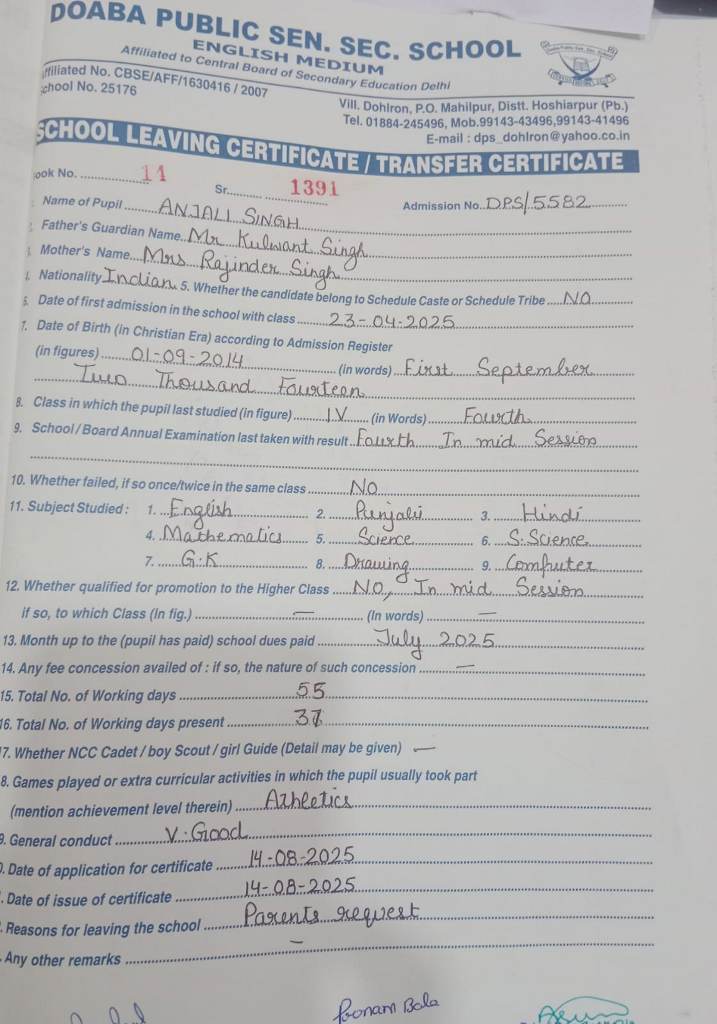 DOABA PUBLIC SEN. SEC. SCHOOL
ENGLISH MEDIUM
Affiliated to Central Board of Secondary Education Delhi
ffiliated No. CBSE/AFF/1630416 / 2007
chool No. 25176
Vill. Dohlron, P.O. Mahilpur, Distt. Hoshiarpur (Pb.)
Tel. 01884-245496, Mob.99143-43496,99143-41496
E-mail : dps_dohlron@yahoo.co.in
SCHOOL LEAVING CERTIFICATE / TRANSFER CERTIFICATE
ook No. 14 Sr. 1391
Name of Pupil ANJALI SINGH Admission No. DPS/5582
Father's Guardian Name Mr Kulwant Singh
Mother's Name Mrs Rajinder Singh
Nationality Indian 5. Whether the candidate belong to Schedule Caste or Schedule Tribe NO
Date of first admission in the school with class 23-04-2025
7. Date of Birth (in Christian Era) according to Admission Register
(in figures) 01-09-2014 (in words) First September
Two Thousand Fourteen
8. Class in which the pupil last studied (in figure) IV (in Words) Fourth
9. School / Board Annual Examination last taken with result Fourth In mid Session
10. Whether failed, if so once/twice in the same class NO
11. Subject Studied : 1. English 2. Punjabi 3. Hindi
4. Mathematics 5. Science 6. S.Science
7. G.K 8. Drawing 9. Computer
12. Whether qualified for promotion to the Higher Class NO, In mid Session
if so, to which Class (In fig.) — (In words) —
13. Month up to the (pupil has paid) school dues paid July 2025
14. Any fee concession availed of : if so, the nature of such concession —
15. Total No. of Working days 55
16. Total No. of Working days present 37
17. Whether NCC Cadet / boy Scout / girl Guide (Detail may be given) —
8. Games played or extra curricular activities in which the pupil usually took part
(mention achievement level therein) Athletics
9. General conduct V. Good
0. Date of application for certificate 14-08-2025
. Date of issue of certificate 14-08-2025
. Reasons for leaving the school Parents request
Any other remarks —
Poonam Bala